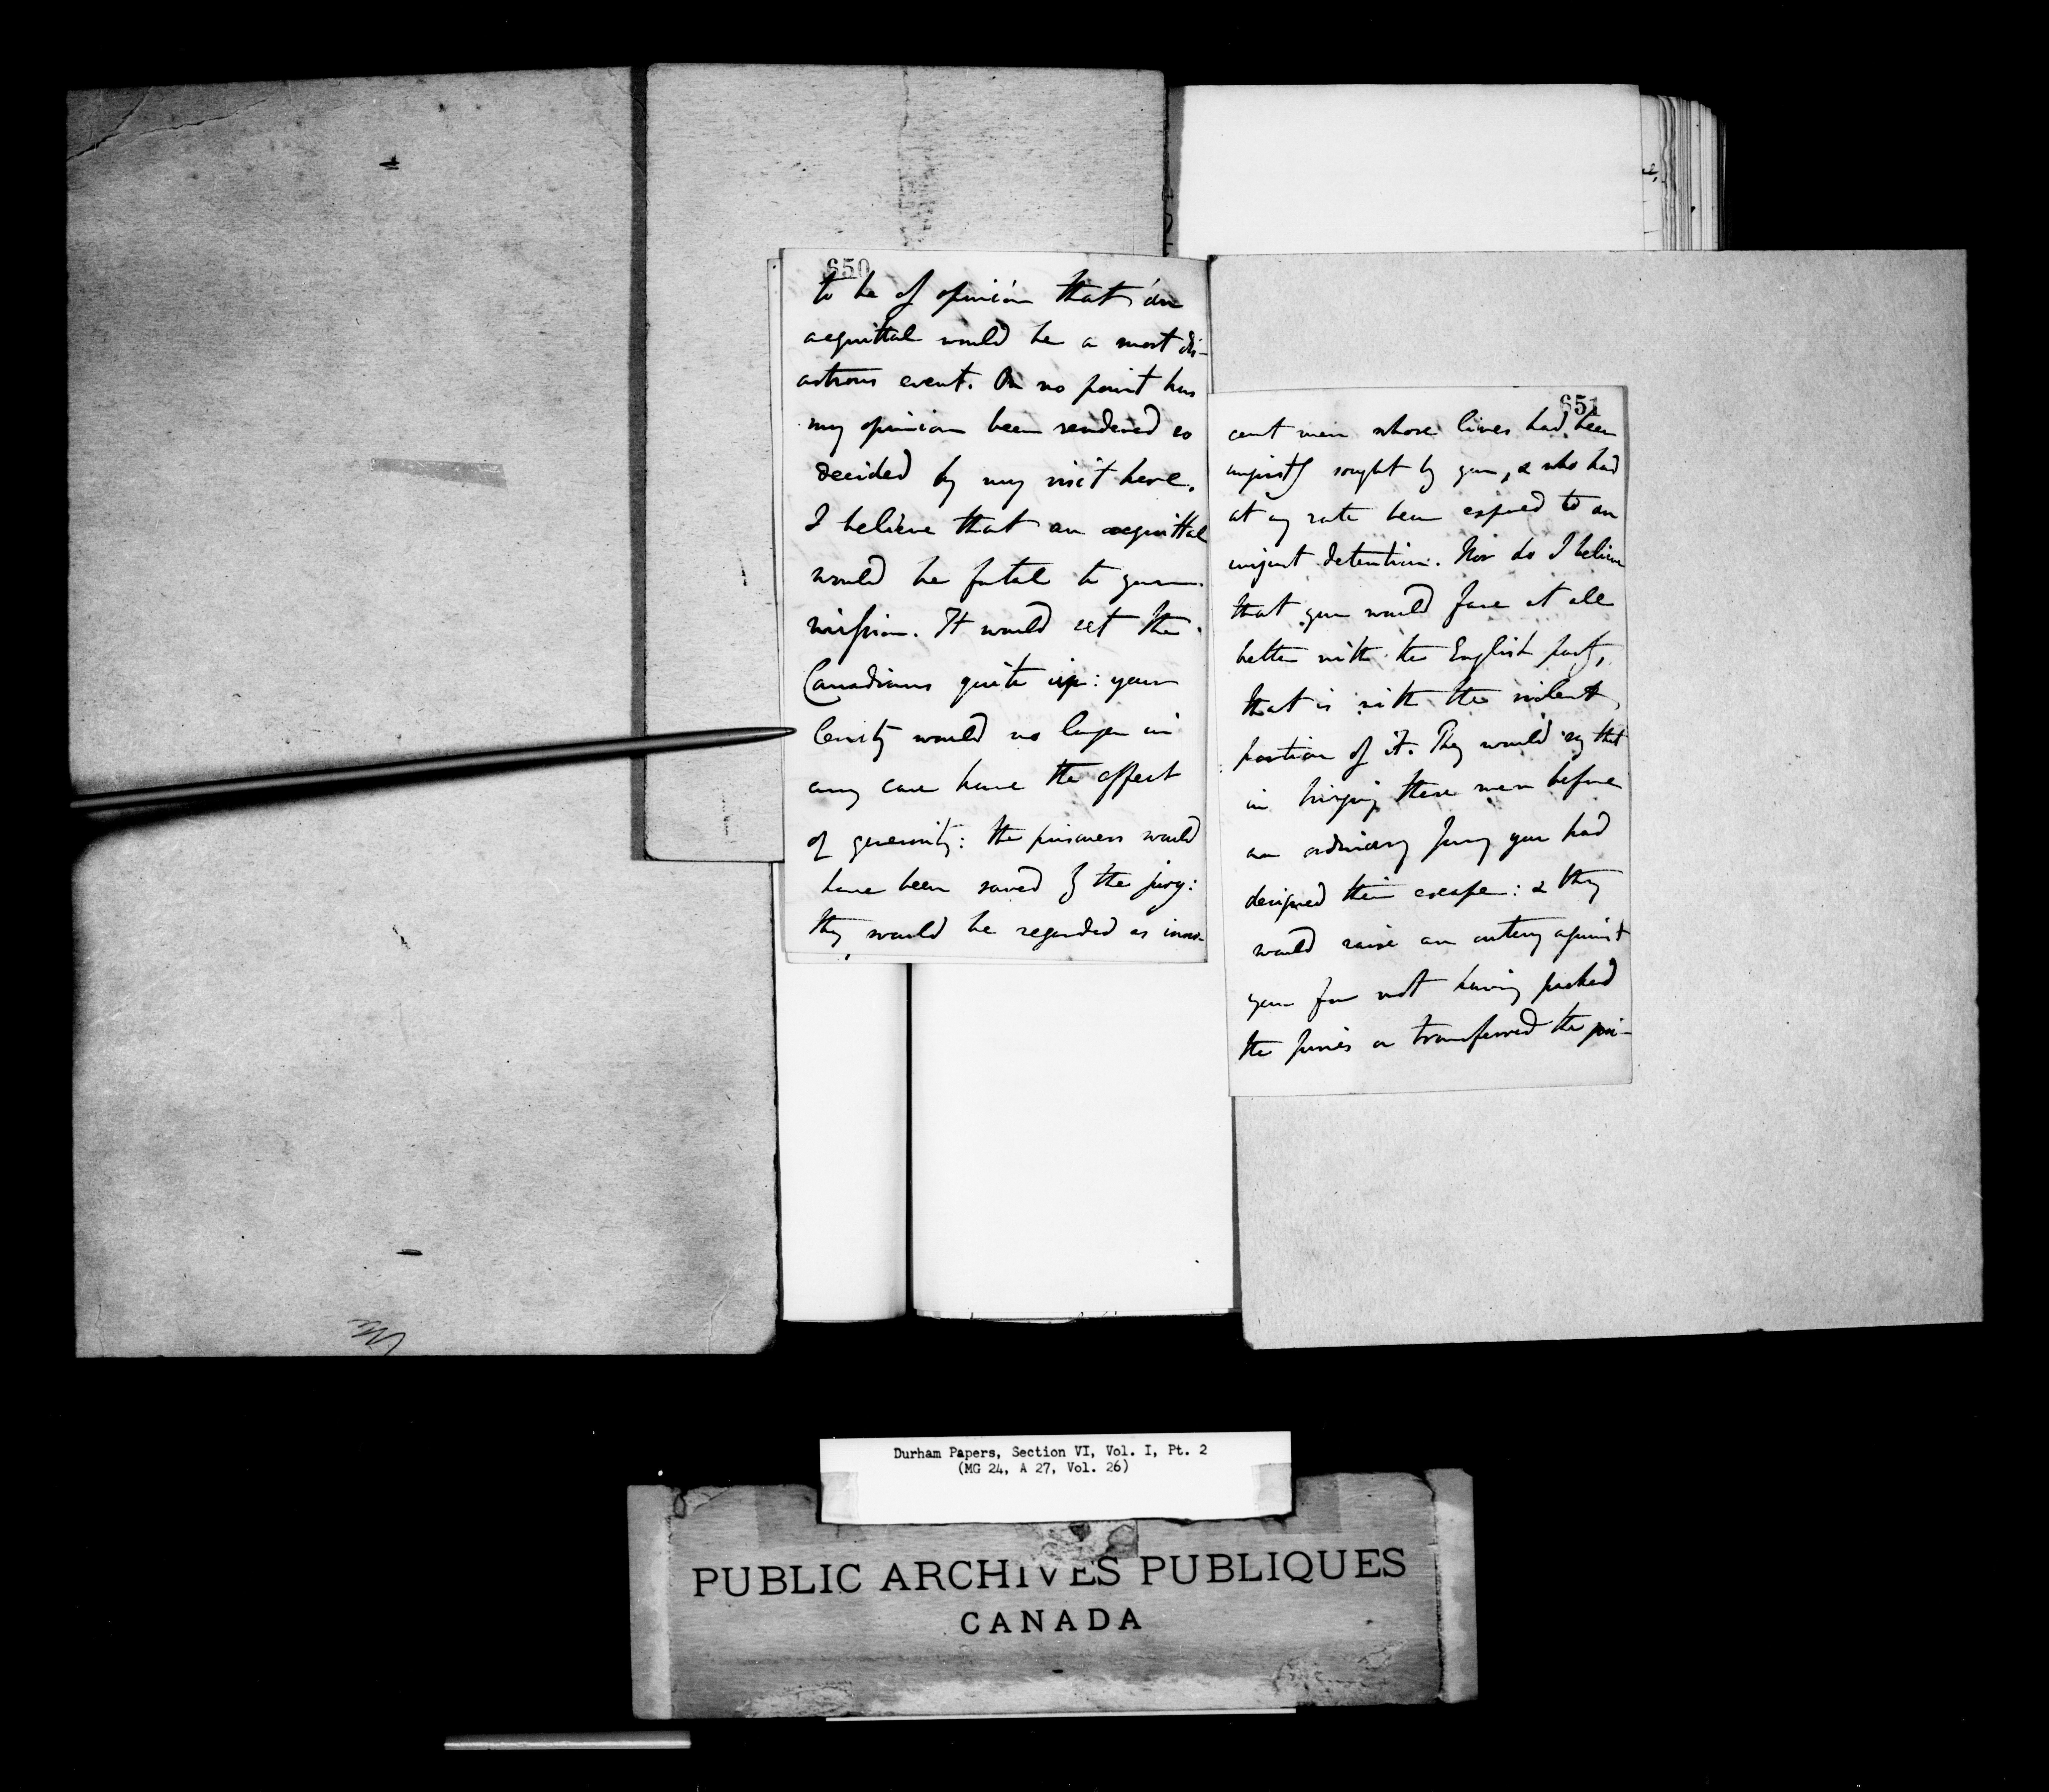 650
to be of opinion that an
acquittal would be a most dis-
astrous event. On no point has
my opinion been rendered so
decided by my visit here.
I believe that an acquittal
would be fatal to your
mission. It would set the
Canadians quite up: your
lenity would no longer in
any case have the effect
of generosity: the prisoners would
have been saved by the jury:
they would be regarded as inno-
651
cent men whose lives had been
unjustly sought by you, & who had
at any rate been exposed to an
unjust detention. Nor do I believe
that you would fare at all
better with the English party,
that is with the violent
portion of it. They would say that
in bringing these men before
an ordinary jury you had
designed their escape: & they
would raise an outcry against
you for not having packed
the juries or transferred the pri-
Durham Papers, Section VI, Vol. I, Pt. 2
(MG 24, A 27, Vol. 26)
PUBLIC ARCHIVES PUBLIQUES
CANADA